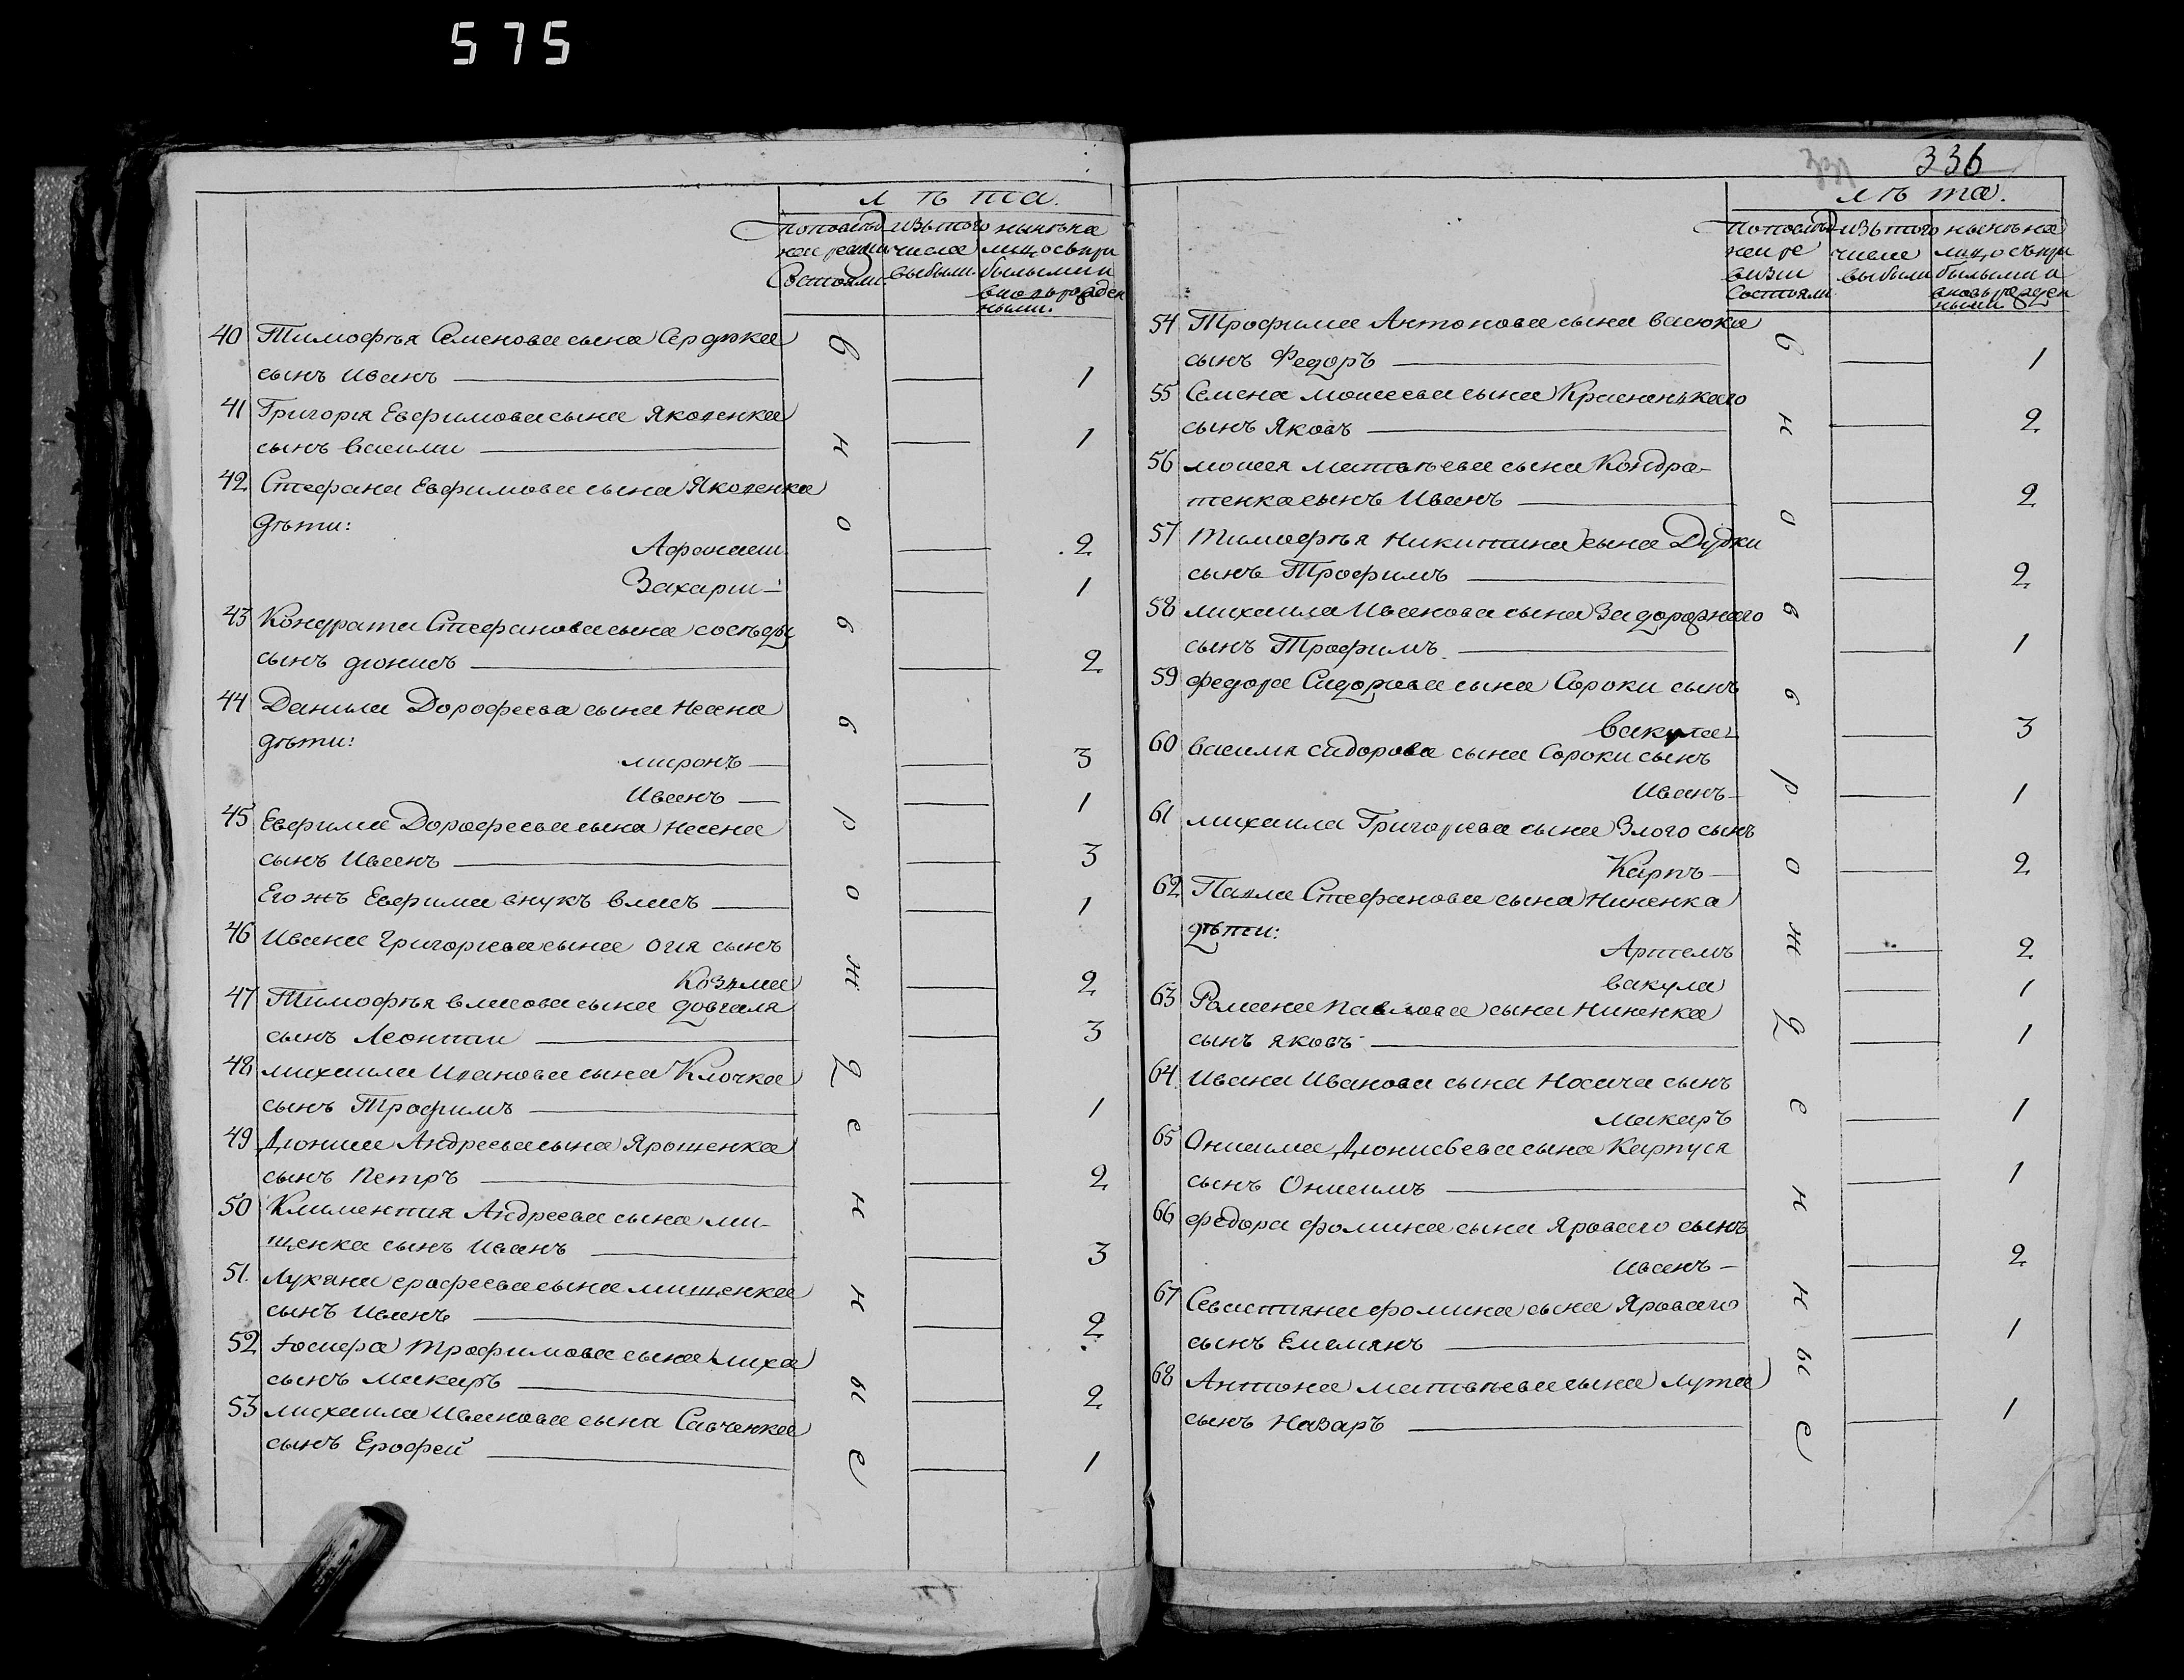 575
лѣта.
по последней ревизии состояли
изъ того числа выбыли
ныне на лицо съ прибылыми и вновь рожденными.
40 Тимофѣя Семенова сына Сердюка
сынъ Иванъ 1
41 Григория Евфимова сына Яковенка
сынъ василии 1
42 Стефана Евфимова сына Яковенка
дѣти:
Афанасии 2
Захарии 1
43 Кондрата Стефанова сына сосѣды
сынъ дионисъ 2
44 Данила Дорофеева сына Несена
дѣти:
миронъ 3
Иванъ 1
45 Евфима Дорофеева сына Несена
сынъ Иванъ 3
Его жъ Евфима внукъ власъ 1
46 Ивана Григориева сына Огия сынъ
Козьма 2
47 Тимофѣя власова сына довгаля
сынъ Леонтии 3
48 михаила Иванова сына Клочка
сынъ Трофимъ 1
49 Дионисия Андреева сына Ярошенка
сынъ Петръ 2
50 Климентия Андреева сына ми-
щенка сынъ Иванъ 3
51. Лукяна ерофеева сына мищенка
сынъ Иванъ 2
52 Iосифа Трофимова сына лиха
сынъ макаръ 2
53 михаила Иванова сына Савченка
сынъ Ерофей 1
вновь рожденные
331
336
лѣта.
по последней ревизии состояли
изъ того числа выбыли
нынѣ на лицо съ прибылыми и вновь рожденными
54 Трофима Антонова сына васюка
сынъ Федоръ 1
55 Семена моисеева сына Красноцкаго
сынъ Яковъ 2
56 моисея матвѣева сына Кондра-
тенка сынъ Иванъ 2
57 Тимофѣя Никитина сына Дудки
сынъ Трофимъ 2
58 михаила Иванова сына Задорожнаго
сынъ Трофимъ 1
59 федора Сидорова сына Сороки сынъ
вакула 3
60 василия сидорова сына Сороки сынъ
Иванъ 1
61 михаила Григориева сына Злого сынъ
Карпъ 2
62 Павла Стефанова сына Ниненка
дѣти:
Артемъ 2
вакула 1
63 Романа павлова сына Ниненка
сынъ яковъ 1
64 Ивана Иванова сына Носача сынъ
макаръ 1
65 Онисима Дионисьева сына Карпуся
сынъ Онисимъ 1
66 федора фомина сына Яроваго сынъ
Иванъ 2
67 Севастияна фомина сына Яроваго
сынъ Емелянъ 1
68 Антона матвѣева сына лута
сынъ Назаръ 1
вновь рожденные